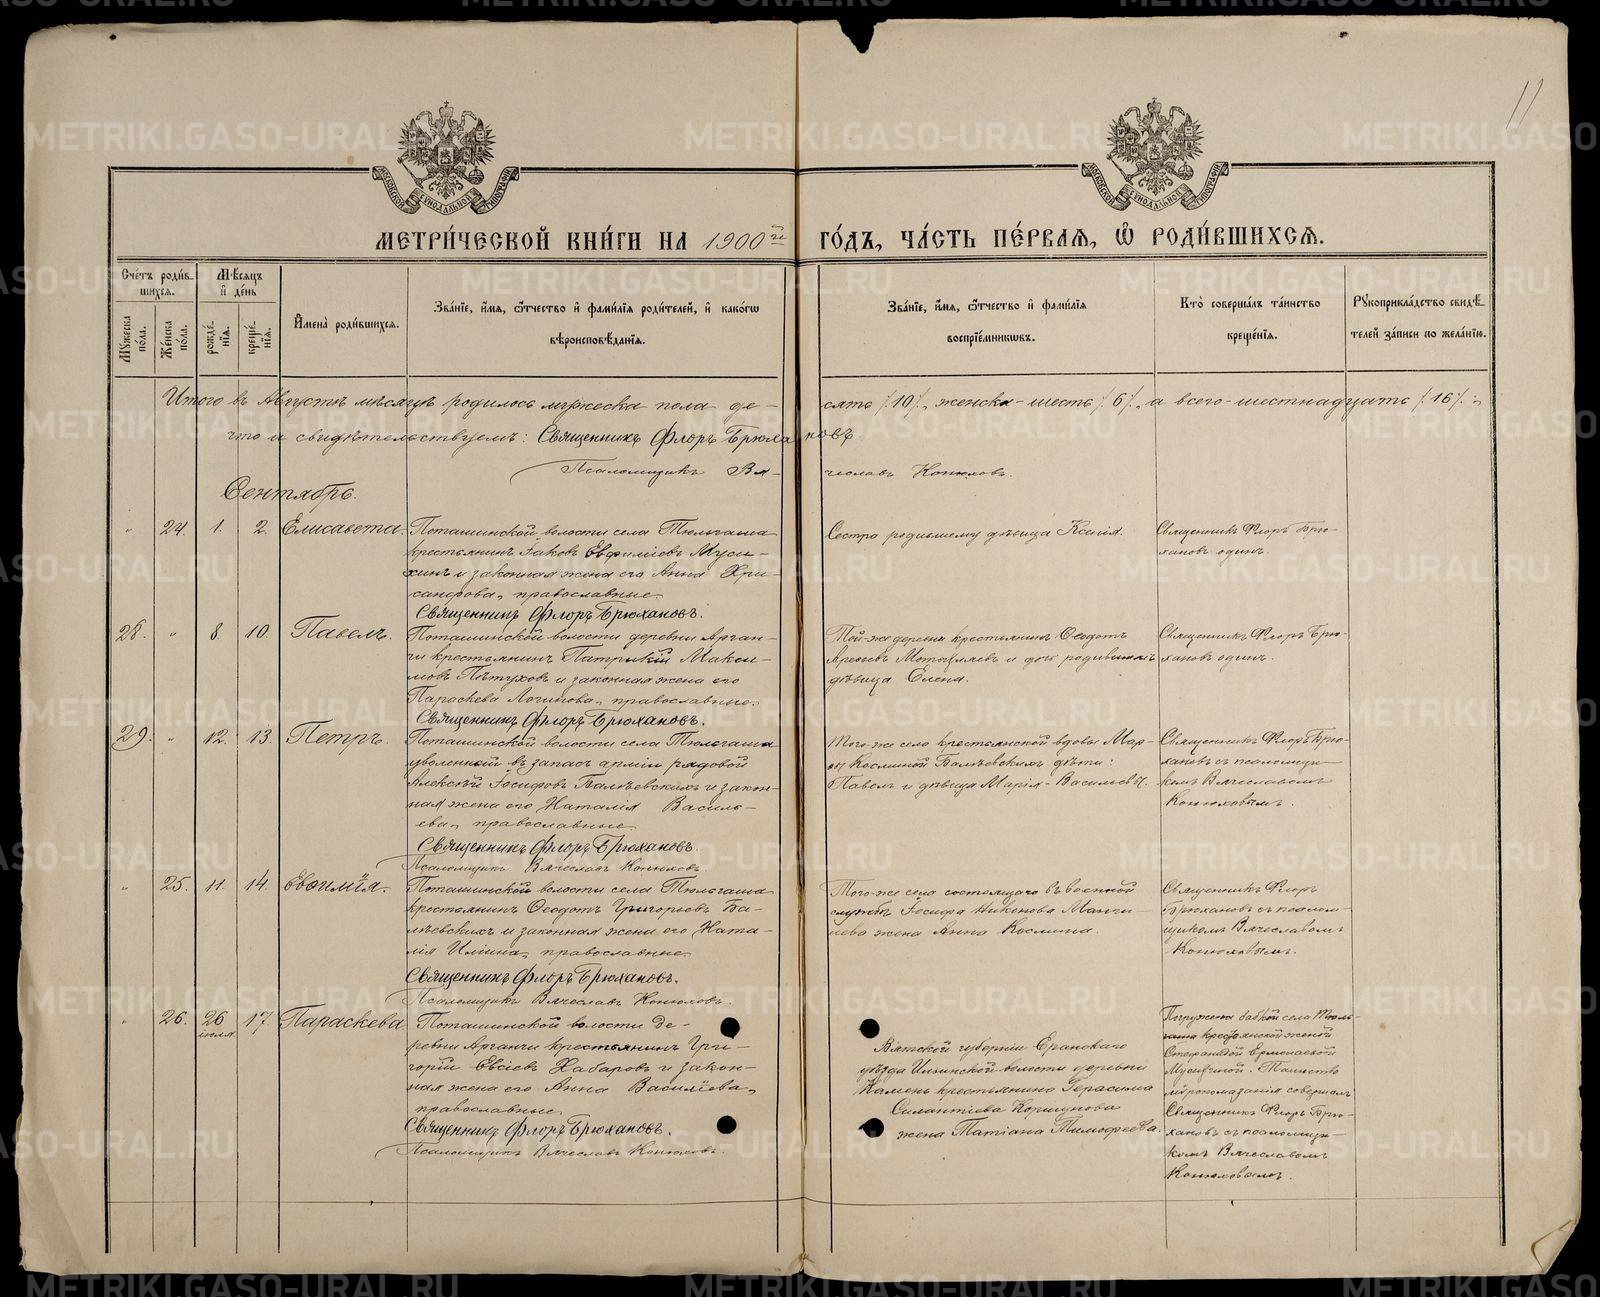 11
МОСКОВСКОЙ СѴНОДАЛЬНОЙ ТИПОГРАФІИ
МОСКОВСКОЙ СѴНОДАЛЬНОЙ ТИПОГРАФІИ
МЕТРИ́ЧЕСКОЙ КНИ́ГИ НА 1900й ГО́ДЪ, ЧА́СТЬ ПЕ́РВАЯ, Ѿ РОДИ́ВШИХСЯ.
Счетъ родившихся.
Мужеска пола.
Женска пола.
Мѣсяцъ и день
рожденія.
крещенія.
Имена родившихся.
Званіе, имя, отчество и фамилія родителей, и какого
вѣроисповѣданія.
Званіе, имя, отчество и фамилія
воспріемниковъ.
Кто совершалъ таинство
крещенія.
Рукоприкладство свидѣ-
телей записи по желанію.
Итого въ Августѣ мѣсяцѣ родилось мужеска пола де- сять /10/, женска - шесть /6/, а всего - шестнадцать /16/:
что и свидѣтельствуемъ: Священникъ Флоръ Брюхановъ
Псаломщикъ Вячеславъ Конюховъ.
Сентябрь.
" 24. 1. 2. Елисавета.
Поташинской волости села Тюльгаша
крестьянинъ Іаковъ Евфиміевъ Муси-
хинъ и законная жена его Анна Хри-
санфова, православные.
Священникъ Флоръ Брюхановъ.
Сестра родившему дѣвица Ксенія.
Священникъ Флоръ Брю-
хановъ одинъ.
28. " 8. 10. Павелъ.
Поташинской волости деревни Арган-
чи крестьянинъ Патрикій Макси-
мовъ Пѣтуховъ и законная жена его
Параскева Логинова, православные.
Священникъ Флоръ Брюхановъ.
Той-же деревни крестьянинъ Ѳеодотъ
и дочь родившихъ
дѣвица Елена.
Священникъ Флоръ Брю-
хановъ одинъ.
29. " 12. 13. Петръ.
Поташинской волости села Тюльгаша
уволенной въ запасъ арміи рядовой
Алексѣй Іосифовъ Балѣевскихъ и закон-
ная жена его Наталія Василь-
ева, православные.
Священникъ Флоръ Брюхановъ.
Псаломщикъ Вячеславъ Конюховъ.
Того-же села крестьянской вдовы Мар-
Косминой Балѣевскихъ дѣти:
Павелъ и дѣвица Марія - Васильевы.
Священникъ Флоръ Брю-
хановъ съ псаломщи-
комъ Вячеславомъ
Конюховымъ.
" 25. 11. 14. Евѳимія.
Поташинской волости села Тюльгаша
крестьянинъ Ѳеодотъ Григорьевъ Ба-
лѣевскихъ и законная жена его Ната-
лія Ильина, православные.
Священникъ Флоръ Брюхановъ.
Псаломщикъ Вячеславъ Конюховъ.
Того-же села состоящаго въ военной
службѣ Іосифа Никонова
жена Анна Космина.
Священникъ Флоръ
Брюхановъ съ псалом-
щикомъ Вячеславомъ
Конюховымъ.
" 26. 26 іюля 17 Параскева
Поташинской волости де-
ревни Арганчи крестьянинъ Гри-
горій Евсіевъ Хабаровъ и закон-
ная жена его Анна Василіева,
православные.
Священникъ Флоръ Брюхановъ.
Псаломщикъ Вячеславъ Конюховъ.
Вятской губерніи Еранскаго
уѣзда Ильинской волости деревни
Камень крестьянина Герасима
Силантіева Коршунова
жена Татіана Тимофеева.
Погружена бабкой села Тюль-
гаша крестьянской женой
Стефанидой Ермолаевой
Мусихиной. Таинство
мѵропомазанія совершалъ
Священникъ Флоръ Брю-
хановъ съ псаломщи-
комъ Вячеславомъ
Конюховымъ.
METRIKI.GASO-URAL.RU